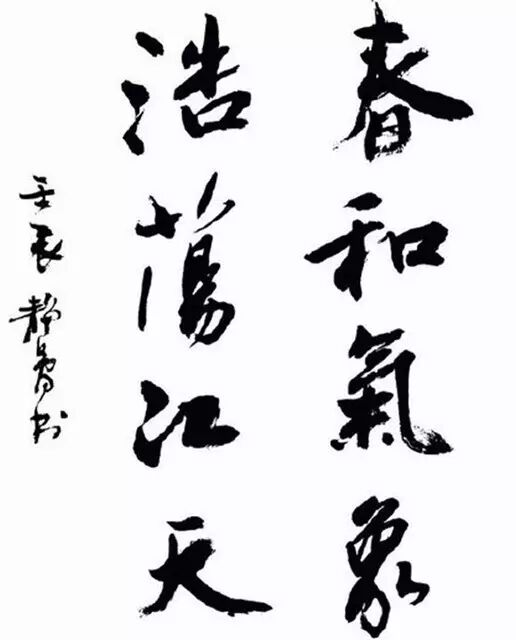 春和氣象
浩蕩江天
壬辰 靜